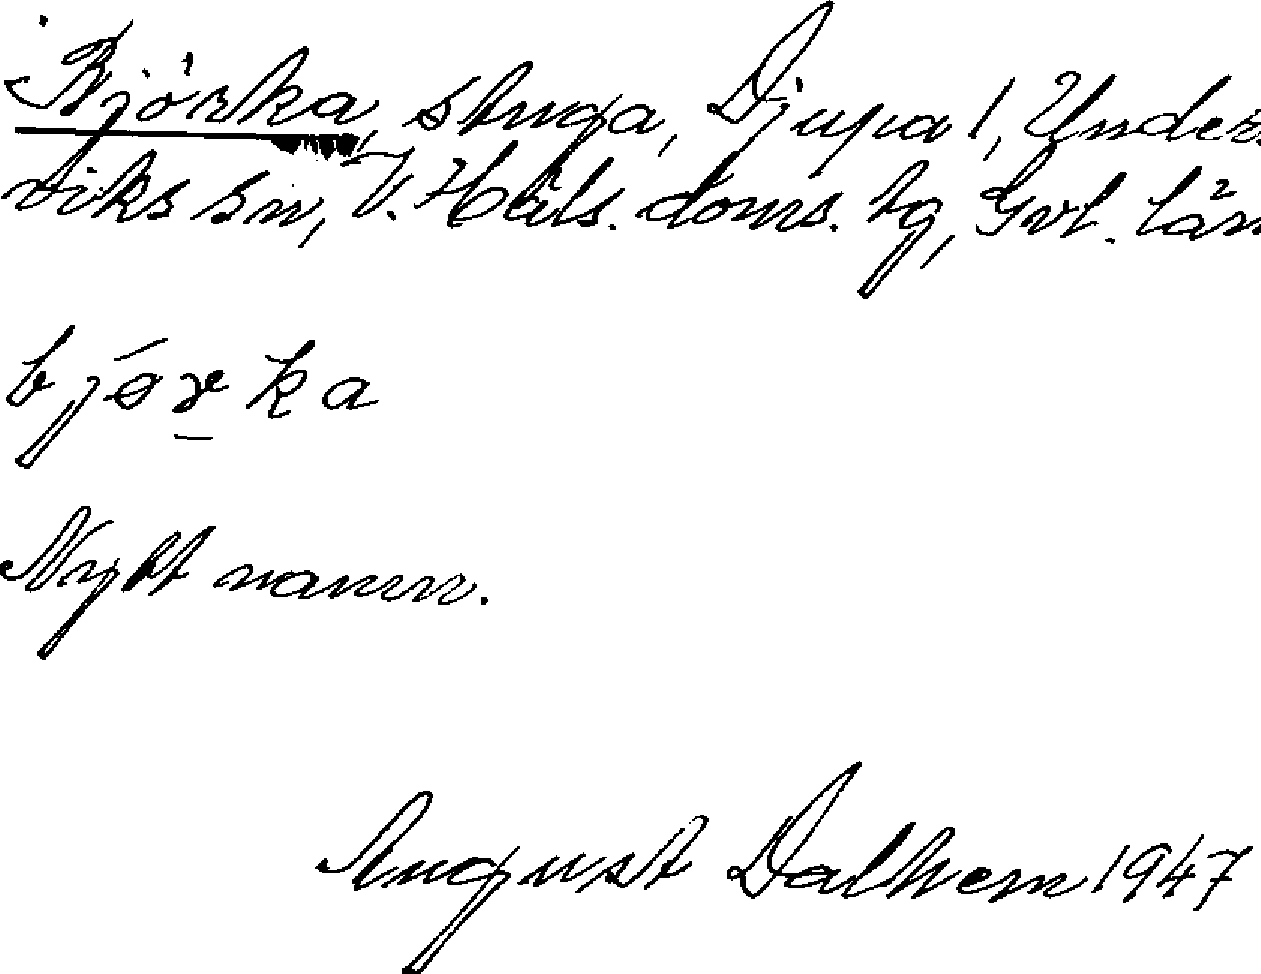 Björka, stuga, Djupa 1, Under-
viks sn, V. Häls. doms. tg, Gvl. län
b j ó r k a
Nytt namn.
August Dalhem 1947